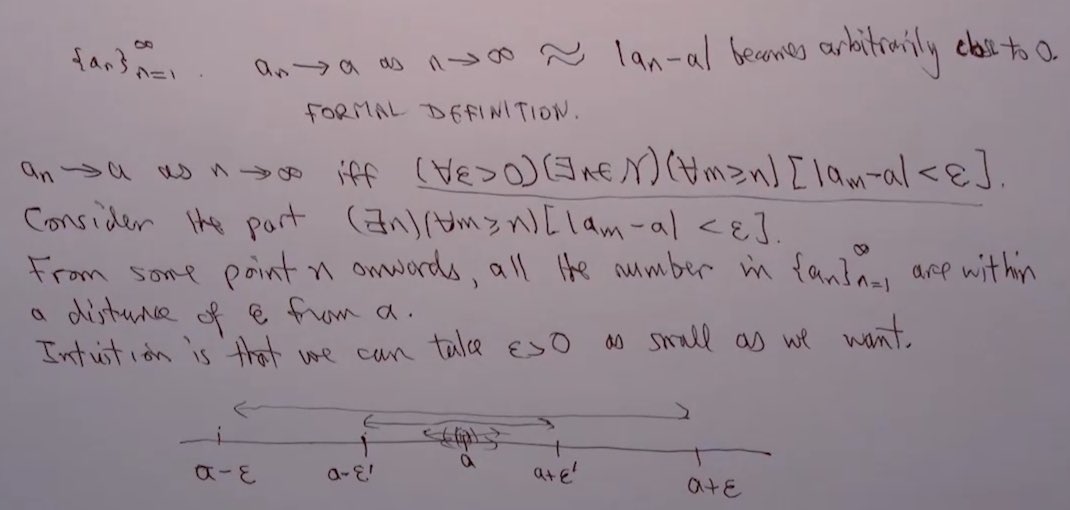 {aₙ}ₙ₌₁^∞. aₙ → a as n → ∞ ≈ |aₙ-a| becomes arbitrarily close to 0.
FORMAL DEFINITION.
aₙ → a as n → ∞ iff (∀ε>0)(∃n∈N)(∀m≥n)[|aₘ-a|<ε].
Consider the part (∃n)(∀m≥n)[|aₘ-a|<ε].
From some point n onwards, all the number in {aₙ}ₙ₌₁^∞ are within
a distance of ε from a.
Intuition is that we can take ε>0 as small as we want.
a-ε a-ε' a a+ε' a+ε